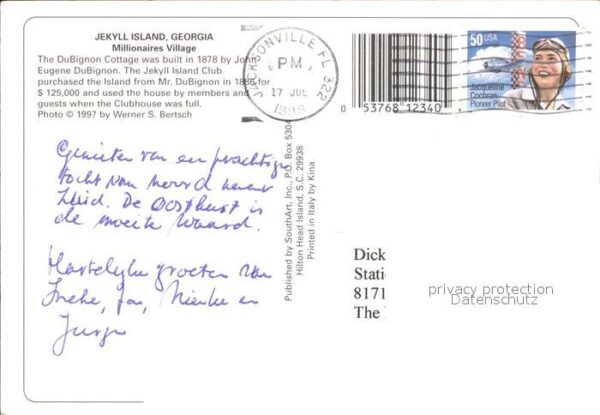 JEKYLL ISLAND, GEORGIA
Millionaires Village
The DuBignon Cottage was built in 1878 by John
Eugene DuBignon. The Jekyll Island Club
purchased the Island from Mr. DuBignon in 1886 for
$ 125,000 and used the house by members and
guests when the Clubhouse was full.
Photo © 1997 by Werner S. Bertsch
JACKSONVILLE FL 322
PM
17 JUL
1998
50 USA
Jacqueline
Cochran
Pioneer Pilot
0 53768 12340
Genieten van een prachtige
tocht van noord naar
Zuid. De Oostkust is
de moeite waard.
Hartelijke groeten van
Ineke, Jos, Nienke en
Published by SouthArt, Inc., P.O. Box 530
Hilton Head Island, S.C. 29938
Printed in Italy by Kina
Dick
Stati
8171
The
privacy protection
Datenschutz